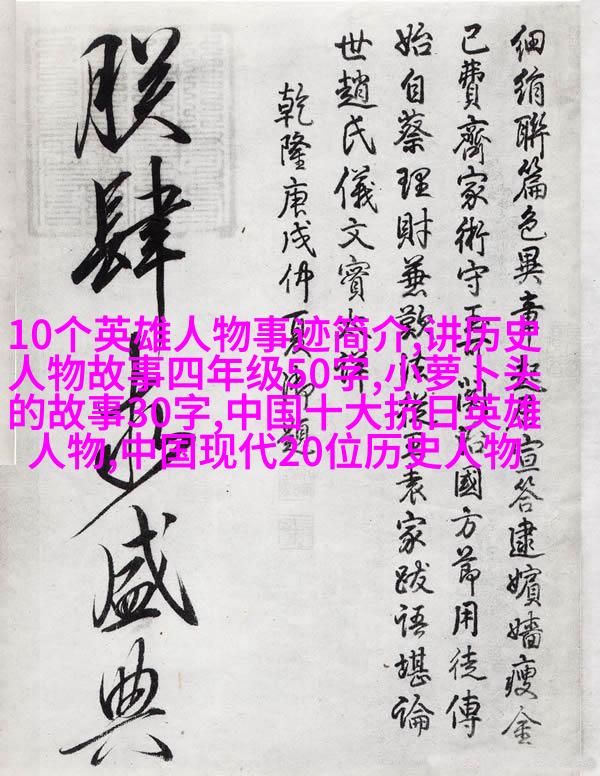 10个英雄人物事迹简介,讲历史
人物故事四年级50字,小萝卜头
的故事30字,中国十大抗日英雄
人物,中国现代20位历史人物
細絹聯篇色異章起宣答逮嬪嬙瘦金
已費齊家術守治國方節用徒傳
始自蔡理財兼歎袁家跋語堪論
世趙氏儀文實詳
乾隆庚戌仲夏御題
朕肆盛典